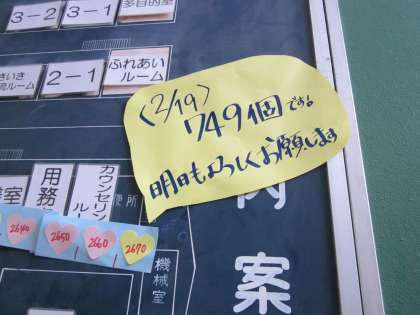 3-2
3-1
多目的室
2-1
ふれあい
ルーム
〈2/19〉
749個です。
明日もよろしくお願いします
用務
カウンセリン
ルー
2640
2650
2660
2670
機械室
内
案